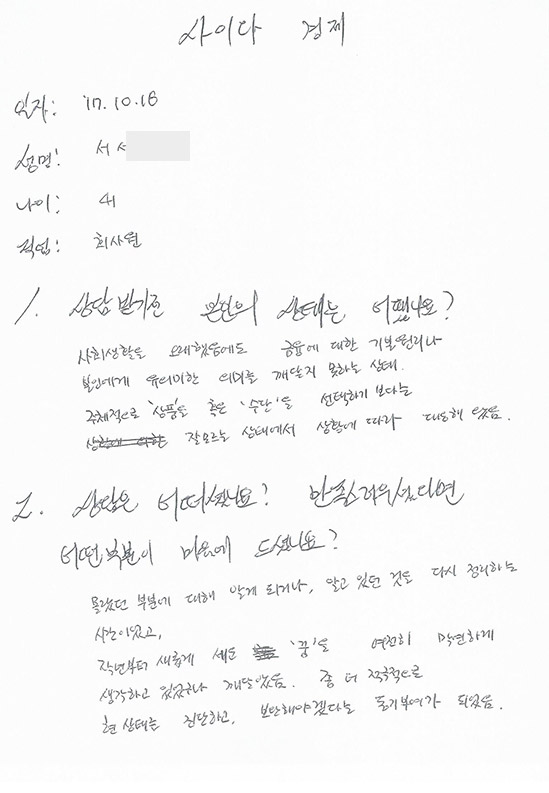 사이다 경제
일자: '17.10.16
성명: 서 서
나이: 41
직업: 회사원
1. 상담 받기전 본인의 상태는 어땠나요?
사회생활을 오래했음에도 금융에 대한 기본원리나
본인에게 유의미한 의미를 깨닫지 못하는 상태.
주체적으로 '상품'을 혹은 '수단'을 선택하기 보다는
잘모르는 상태에서 상황에 따라 대응해 왔음.
2. 상담은 어떠셨나요? 만족스러우셨다면
어떤 부분이 마음에 드셨나요?
몰랐던 부분에 대해 알게 되거나, 알고 있던 것도 다시 정리하는
시간이었고,
작년부터 새롭게 세운 '꿈'을 여전히 막연하게
생각하고 있었구나 깨달았음. 좀 더 적극적으로
현 상태를 진단하고, 보완해야겠다는 동기부여가 되었음.